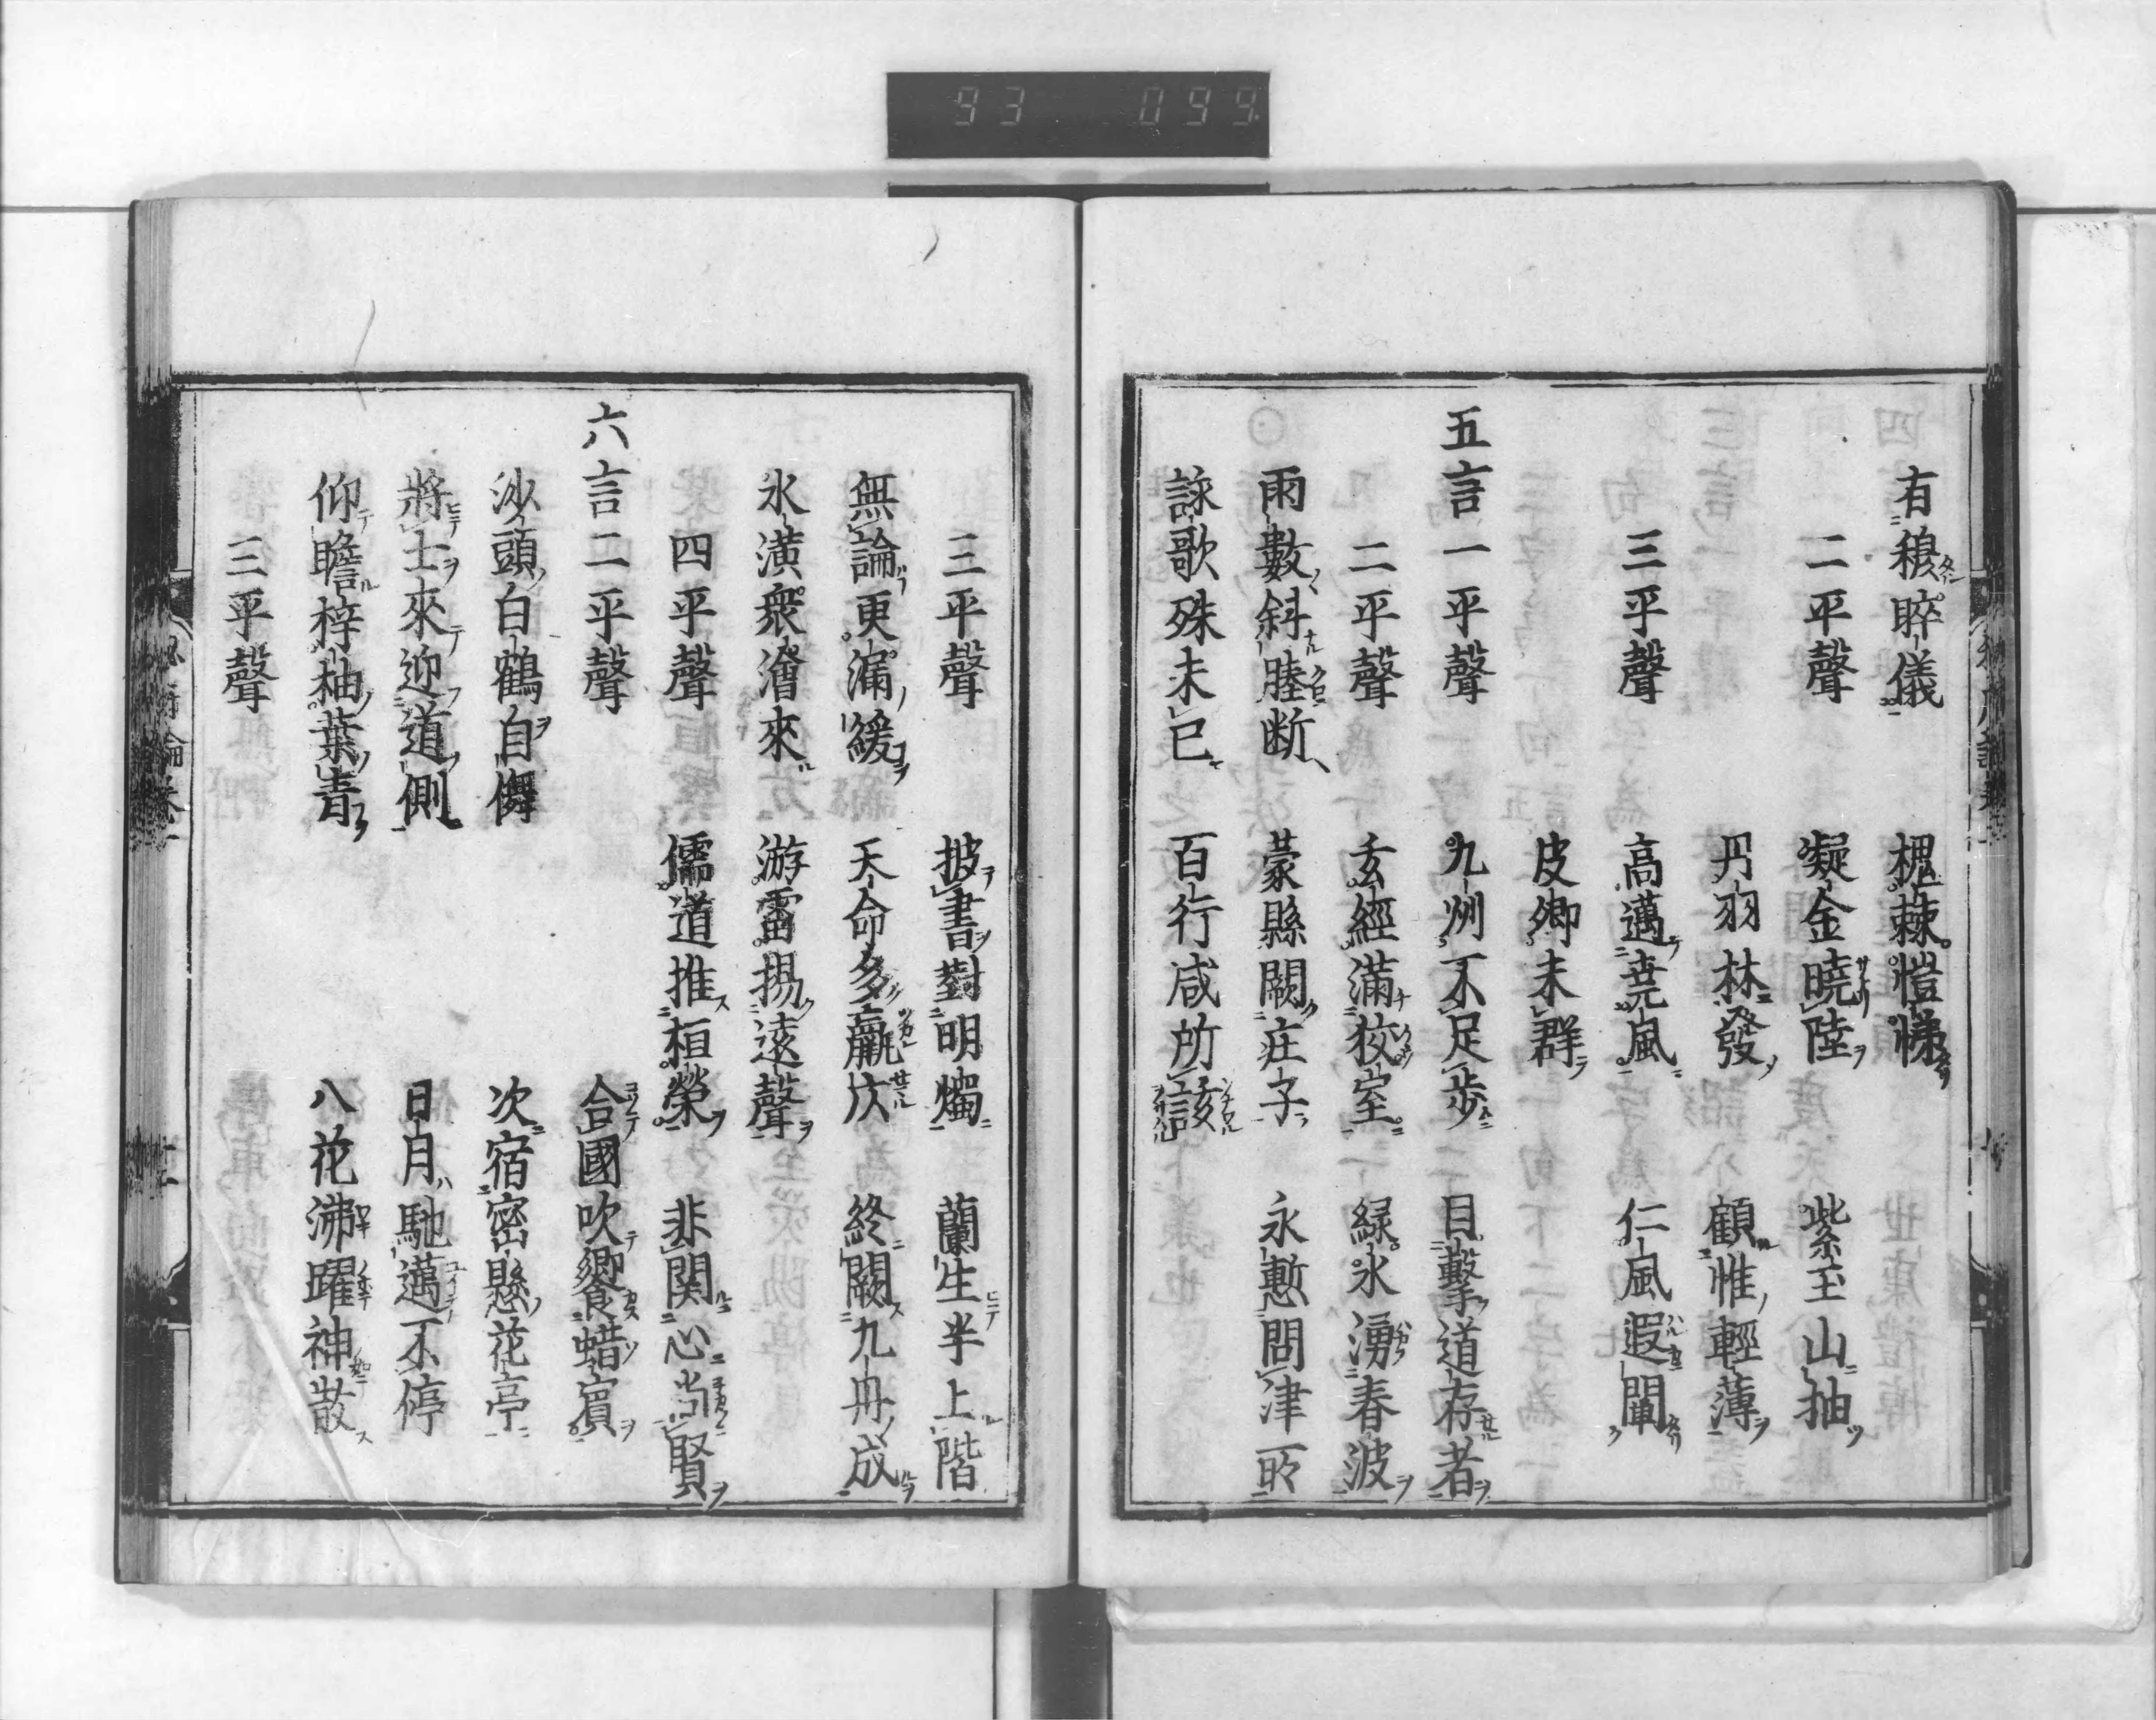 有穆睟儀 槐棘愷悌
二平聲 凝金曉陸 紫玉山抽
丹羽林發 顧惟輕薄
三平聲 高邁堯風 仁風遐闡
皮卿未群
五言一平聲 九州不足步 目擊道存者
二平聲 玄經滿狡室 緑水湧春波
雨數斜塍断 蒙縣闕庄子 永慙問津所
詠歌殊未已 百行咸所該
三平聲 披書對明燭 蘭生半上階
無論更漏緩 天命多羸仄 終闕九丹成
水潢衆澮來 游雷揚遠聲
四平聲 儒道推桓榮 非関心尚賢
六言二平聲 合國吹饗蜡賓
沙頭白鶴自儛 次宿密懸花亭
將士來迎道側 日月馳邁不停
仰瞻梓柚葉青 八花沸躍神散
三平聲
93 099